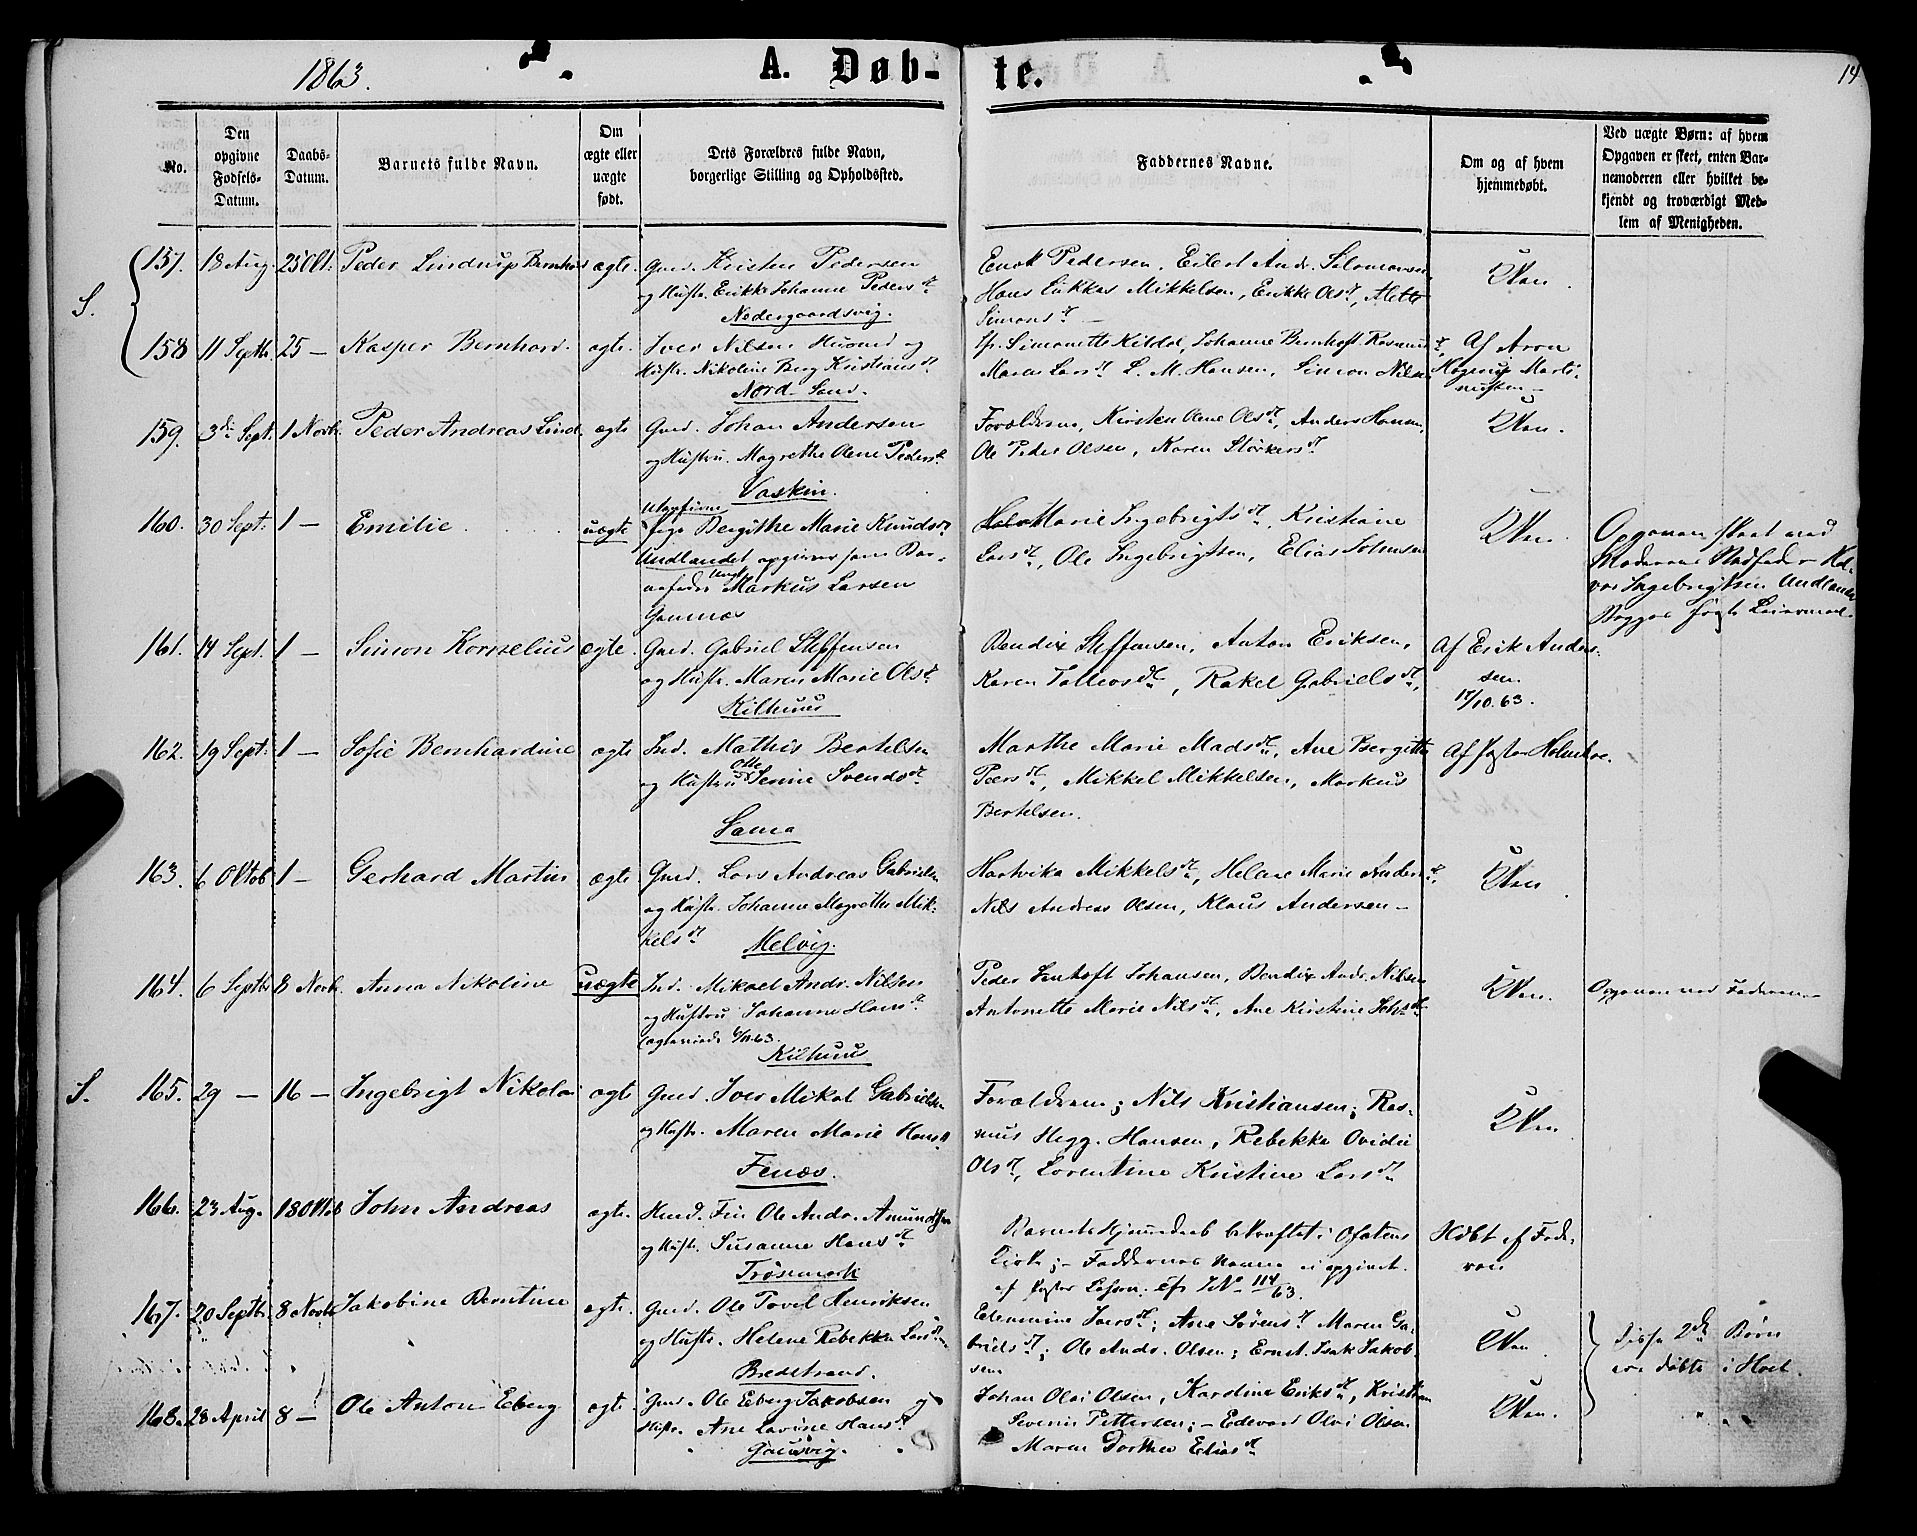 1863.
A. Døb-
te.
14
No.
Den
opgivne
Fødsels-
Datum.
Daabs-
Datum.
Barnets fulde Navn.
Om
ægte eller
uægte
født.
Dets Forældres fulde Navn,
borgerlige Stilling og Opholdssted.
Faddernes Navne.
Om og af hvem
hjemmedøbt.
Ved uægte Børn: af hvem
Opgaven er skeet, enten Bar-
nemoderen eller hvilket be-
kjendt og troværdigt Med-
lem af Menigheden.
S.
157. 18 Aug 25 Okt: Peder Lindrup Bernhard ægte. Gmd. Kristen Pedersen
og Hustr. Erikke Johanne Peders dt
Nedergaardsvig.
Enok Pedersen, Eilert Andr. Salomonsen
Hans Lukkas Mikkelsen, Erikke Ols dt, Alette
Simons dt
158 11 Septb. 25 — Kasper Bernhard. ægte. Iver Nilsen og
Hustr. Nikoline Berg Kristians dt
Nord-Sand.
Simonette Kildal, Johanne Bernhoft Rasmus dt,
Maren Lars dt L. M. Hansen, Simon Nilsen
Af Aron
Hagerup Marti-
nussen
159. 3die Sept. 1 Novb. Peder Andreas Lind. ægte Gmd. Johan Andersen
og Hustru. Magrethe Olene Peders dt
Vaskin.
Forældrene, Kirsten Olene Ols dt, Anders Hansen,
Ole Peder Olsen, Karen Størkers dt
160. 30 Sept: 1 — Emilie uægte Pige Bergithe Marie Knuds dt
Andlandet opgiver som Bar-
nefader Ungk. Markus Larsen
Marie Ingebrigts dt, Kristiane
Lars dt, Ole Ingebrigtsen, Elias Johnsen
Opgaven skeet ved
Moderens Stedfader Hal-
vor Ingebrigtsen Andlandet
161. 14 Sept. 1 — Simon Kornelius ægte. Gmd. Gabriel Steffensen
og Hustr. Maren Marie Ols dt
Kilhuus
Bendix Steffensen, Anton Eriksen,
Karen Tolleos dt, Rakel Gabriels dt,
Af Erik Anders-
sen.
17/10.63.
162. 19 Sept: 1 — Sofie Bernhardine ægte Ind. Mathis Bertelsen
og Hustru Jenine Svends dt
Sama
Marthe Marie Mads dt, Ane Bergitte
Peers dt, Mikkel Mikkelsen, Markus
Bertelsen.
Af Pastor Holmboe.
163. 6 Oktob 1 — Gerhard Martin ægte Gmd. Lars Andreas Gabrielsen
og Hustr. Johanne Magrethe Mik-
kels dt
Melvig.
Hartvika Mikkels dt, Helene Marie Anders dt,
Nils Andreas Olsen, Klaus Andersen —
164. 6 Septb. 8 Novb. Anna Nikoline uægte Ind. Mikael Andr. Nilsen
og Hustru Johanne Hans dt
Kilhuus
Peder Johansen, Bendix Andr. Nilsen
Antonette Marie Nils dt, Ane Kirstine Johs dt
Opgaven ved Faderen
S.
165. 29 — 16 — Ingebrigt Nikolai ægte Gmd. Iver Mikal Gabrielsen
og Hustr. Maren Marie Hans dt
Fenæs.
Forældrene; Nils Kristiansen; Ras-
mus Hegg. Hansen, Rebekka Ovidie
Ols dt, Lorentine Kristine Lars dt
166. 23 Aug. 18 Oktob John Andreas ægte. Ole Andr. Amundsen
og Hustr. Susanne Hans dt
Trøsemark
Barnets Hjemmedaab bekræftet i Ofotens
Kirke; — Faddernes Navne ei opgivet
af Pastor No 114/63.
Hdbt af Fade-
ren
167. 20 Septb. 8 Novb. Jakobine Berntine ægte. Gmd. Ole Povel Henriksen
og Hustr. Helene Rebekka Lars dt
Bredstrand.
Edenmine Ivers dt; Ane Sørens dt Maren Ga-
briels dt; Ole Andr. Olsen; Ernst Isak Jakob-
sen
disse 2de Børn
ere døbte i Host.
168. 28 April 8 — Ole Anton Eberg ægte. Gmd. Ole Eberg Jakobsen og
Hustr. Ane Lavine Hans dt
Gausvig.
Johan Olai Olsen, Karoline Eriks dt, Kristian
Severin Pettersen; — Edevard Olai Olsen
Maren Dorthea Elias dt